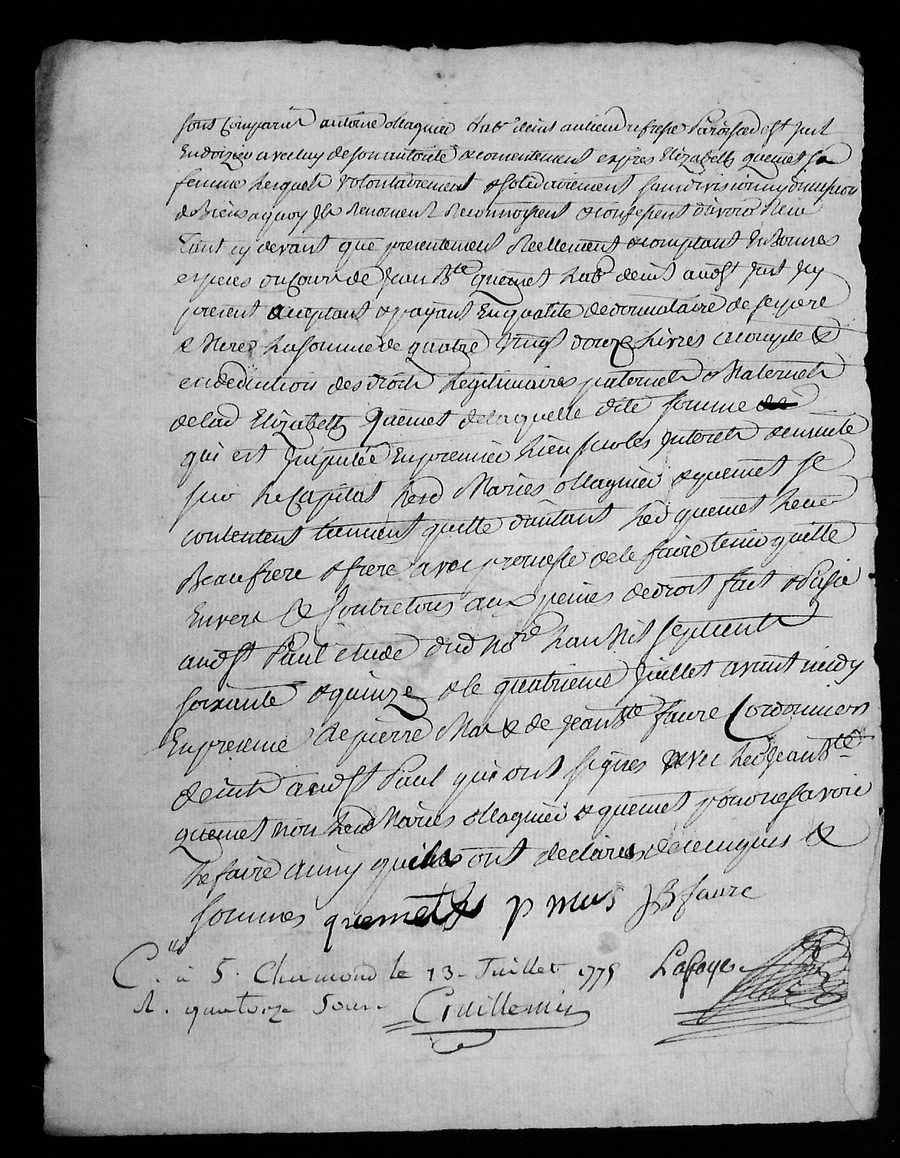 sont Comparus antoine Magnier habt. deint au lieu de frefse Paroisse de st just
Endoizieu avec luy de son autorité & consentement exprès Elizabeth quemet sa
femme lesquels volontairement & solidairement sans division ny discussion
de Biens a quoy ils Renoncent Reconnoissent & confessent d'avoir Reçu
Tant cy devant que presentement Reellement & comptant En Bonnes
especes du Cours de Jean Bte quemet habt. deint audt st just Icy
present acceptant & payant En qualité de donnataire de ses pere
& Mere La somme de quatre vingt douze Livres acompte &
en deduction des droits Legitimaires paternels & Maternels
de lad Elizabeth Quemet de laquelle dite somme
qui est Imputée En premier Lieu sur les Interets & ensuite
sur Le Capital Lesd Mariés Magnier & quemet se
contentent tiennent quitte d'autant Led quemet Leur
Beaufrere & frere avec promesse de le faire tenir quitte
Envers & Contre tous aux peines de droit fait & Passé
audt st Paul etude dud Nore L'an Mil sept cents
soixante & quinze & le quatrieme Juillet avant midy
En presence de pierre Mas & de Jean Bte faure Cordonniers
deints audt st Paul qui ont signés avec Led Jean Bte
quemet non Lesd Mariés Magnier & quemet pour ne savoir
Le faire ainsy quils ont declarés de ce enquis &
sommés quemet p mas JB faure
C. lé à S. Chamond le 13 Juillet 1775 Lafaye
R. quatorze Sous Cruillemin